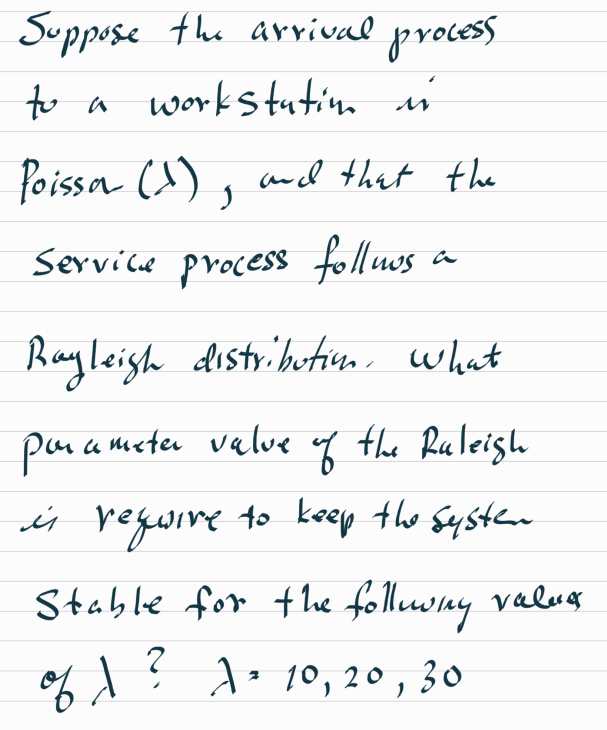 Suppose the arrival process
to a workstation is
Poisson (λ), and that the
service process follows a
Rayleigh distribution. What
parameter value of the Raleigh
is require to keep the system
stable for the following values
of λ? λ = 10, 20, 30